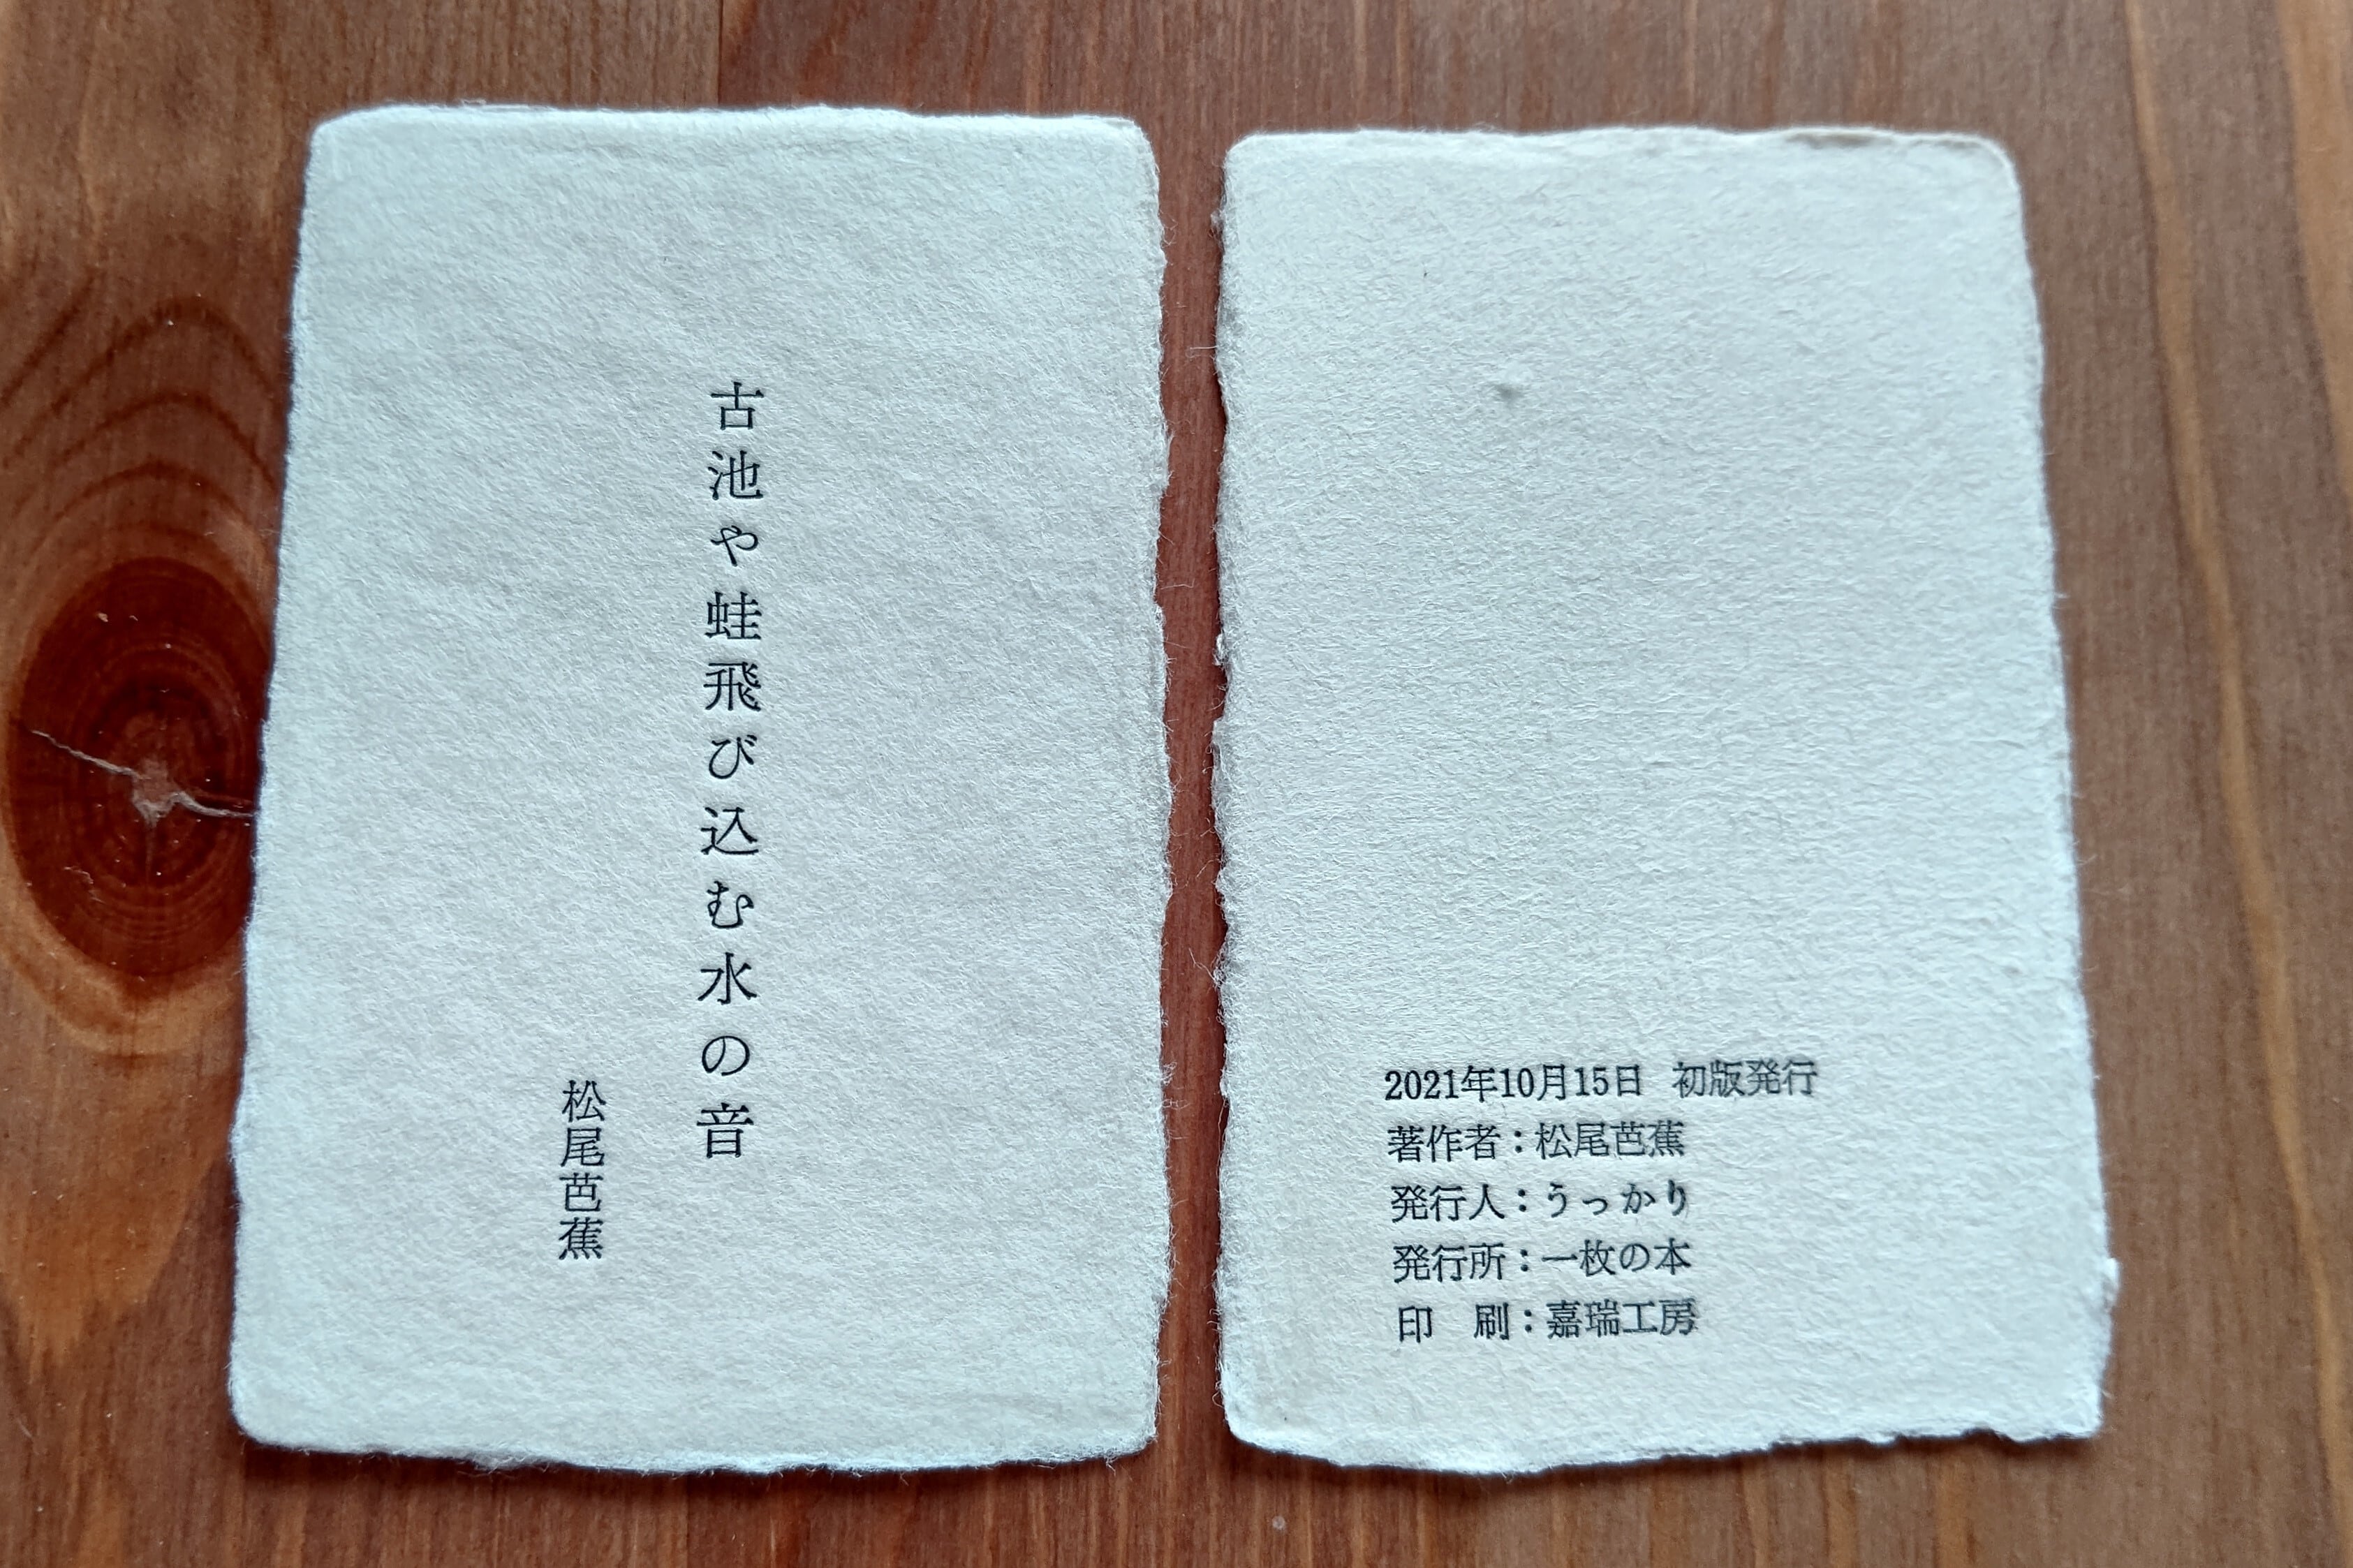 古池や蛙飛び込む水の音
松尾芭蕉
2021年10月15日 初版発行
著作者：松尾芭蕉
発行人：うっかり
発行所：一枚の本
印　刷：嘉瑞工房